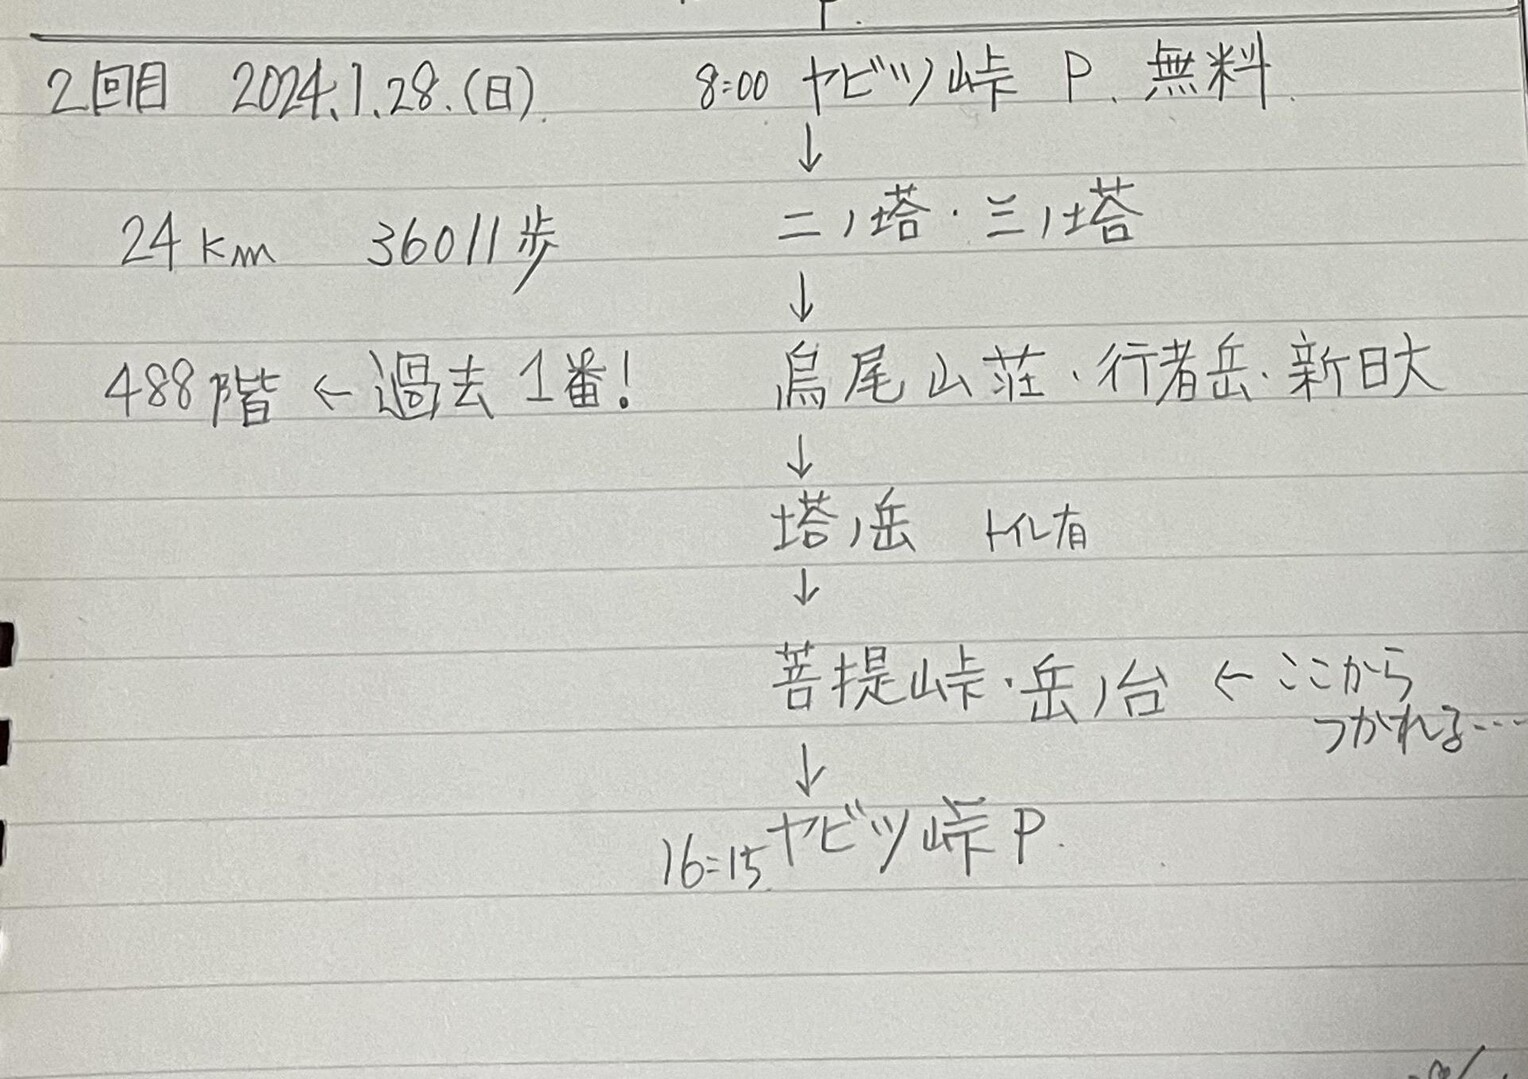 2回目 2024.1.28.(日). 8:00 ヤビツ峠 P. 無料.
↓
24km 36011歩 二ノ塔・三ノ塔
↓
488階 ← 過去1番! 烏尾山荘・行者岳・新日大
↓
塔ノ岳 トイレ有
↓
菩提峠・岳ノ台 ← ここから
つかれる…
↓
16:15 ヤビツ峠 P.